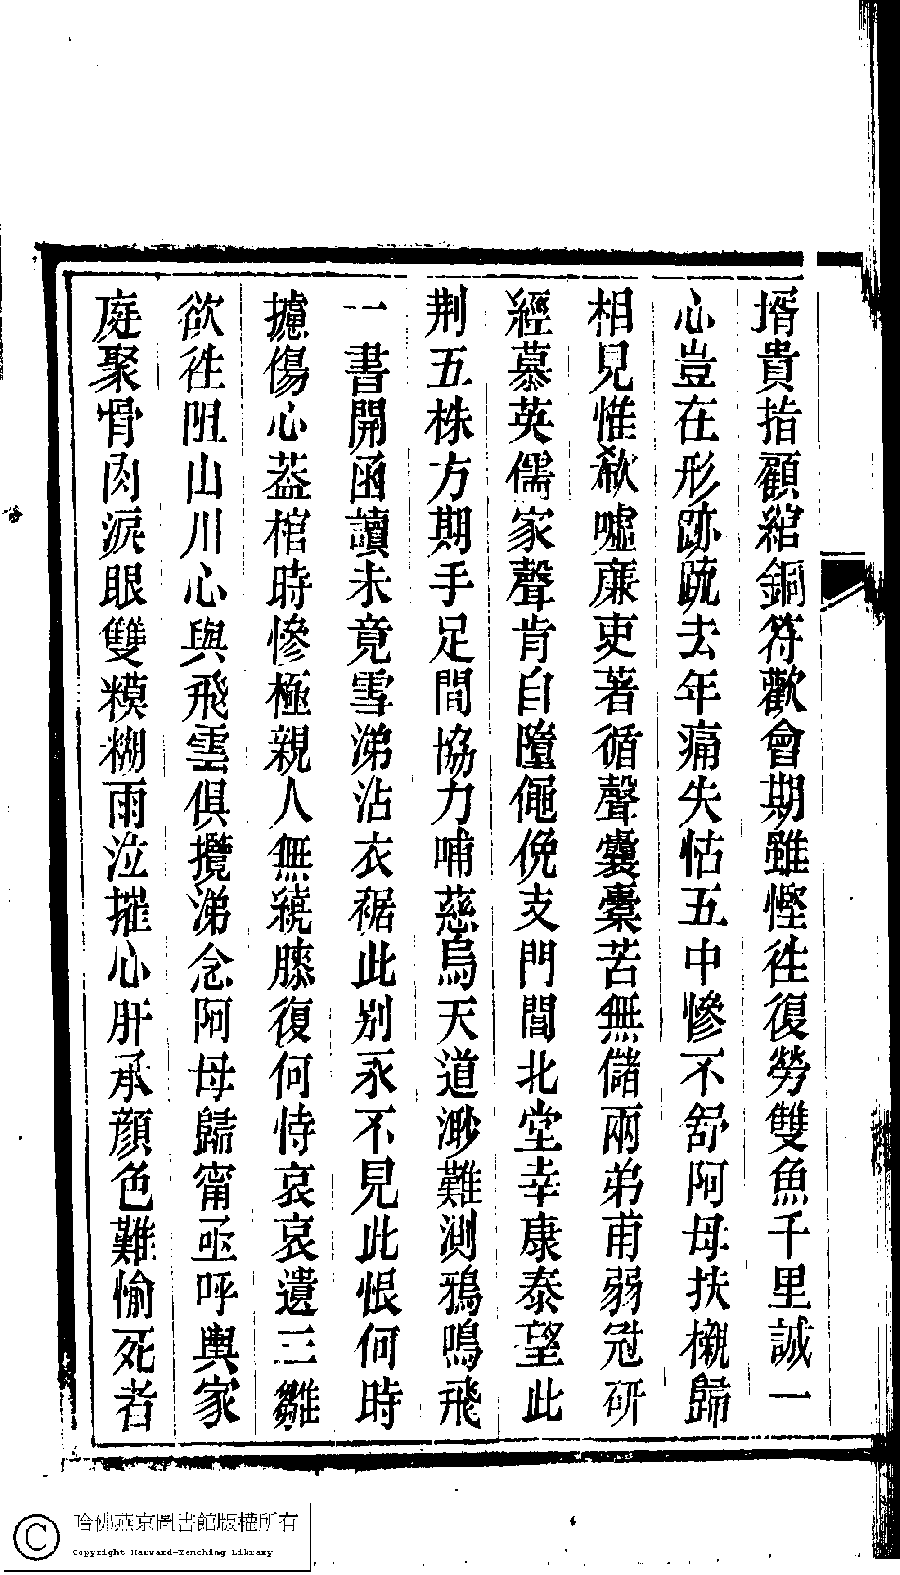 壻貴指顧綰銅符歡會期雖慳徃復勞雙魚千里誠一
心豈在形跡疏去年痛失怙五中慘不舒阿母扶櫬歸
相見惟欷噓廉吏著循聲囊橐苦無儲兩弟甫弱冠研
經慕英儒家聲肯自墮僶俛支門閭北堂幸康泰望此
荆五株方期手足間協力哺慈烏天道渺難測鴉鳴飛
一書開函讀未竟雪涕沾衣裾此别永不見此恨何時
攄傷心葢棺時慘極親人無繞膝復何恃哀哀遺三雛
欲徃阻山川心與飛雲俱攬涕念阿母歸甯亟呼輿家
庭聚骨肉淚眼雙糢糊雨泣摧心肝承顏色難愉死者
哈佛燕京圖書館版權所有
Copyright Harvard-Yenching Library